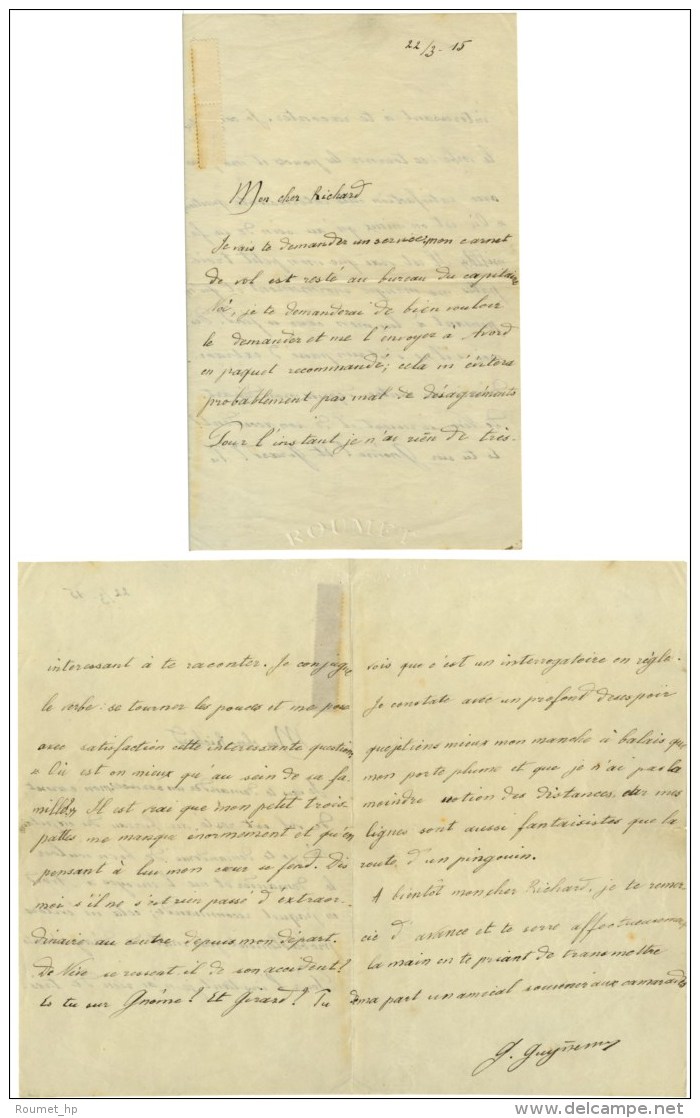 22/3. 15
Mon cher Richard
Je vais te demander un service; mon carnet
de vol est resté au bureau du capitaine
je te demanderai de bien vouloir
le demander et me l'envoyer à Avord
en paquet recommandé; cela m'évitera
probablement pas mal de désagréments
Pour l'instant je n'ai rien de très
ROUMET
interessant à te raconter. Je conjugue
le verbe: se tourner les pouces et me pose
avec satisfaction cette interessante question
« Où est on mieux qu'au sein de sa fa
mille » Il est vrai que mon petit trois
pattes me manque enormement et qu'en
pensant à lui mon cœur se fend. Dis
moi s'il ne s'est rien passé d'extraor-
dinaire au centre depuis mon départ.
De se ressent il de son accident?
Es tu sur Gnôme? Et Girard? Tu
vois que c'est un interrogatoire en règle.
Je constate avec un profond desespoir
que je tiens mieux mon manche à balais que
mon porte plume et que je n'ai pas la
moindre notion des distances, car mes
lignes sont aussi fantaisistes que la
route d'un pingouin.
A bientôt mon cher Richard, je te remer
cie d'avance et te serre affectueusement
la main en te priant de transmettre
de ma part un amical souvenir aux camarades
G. Guynemer
© Roumet_hp
delcampe.net